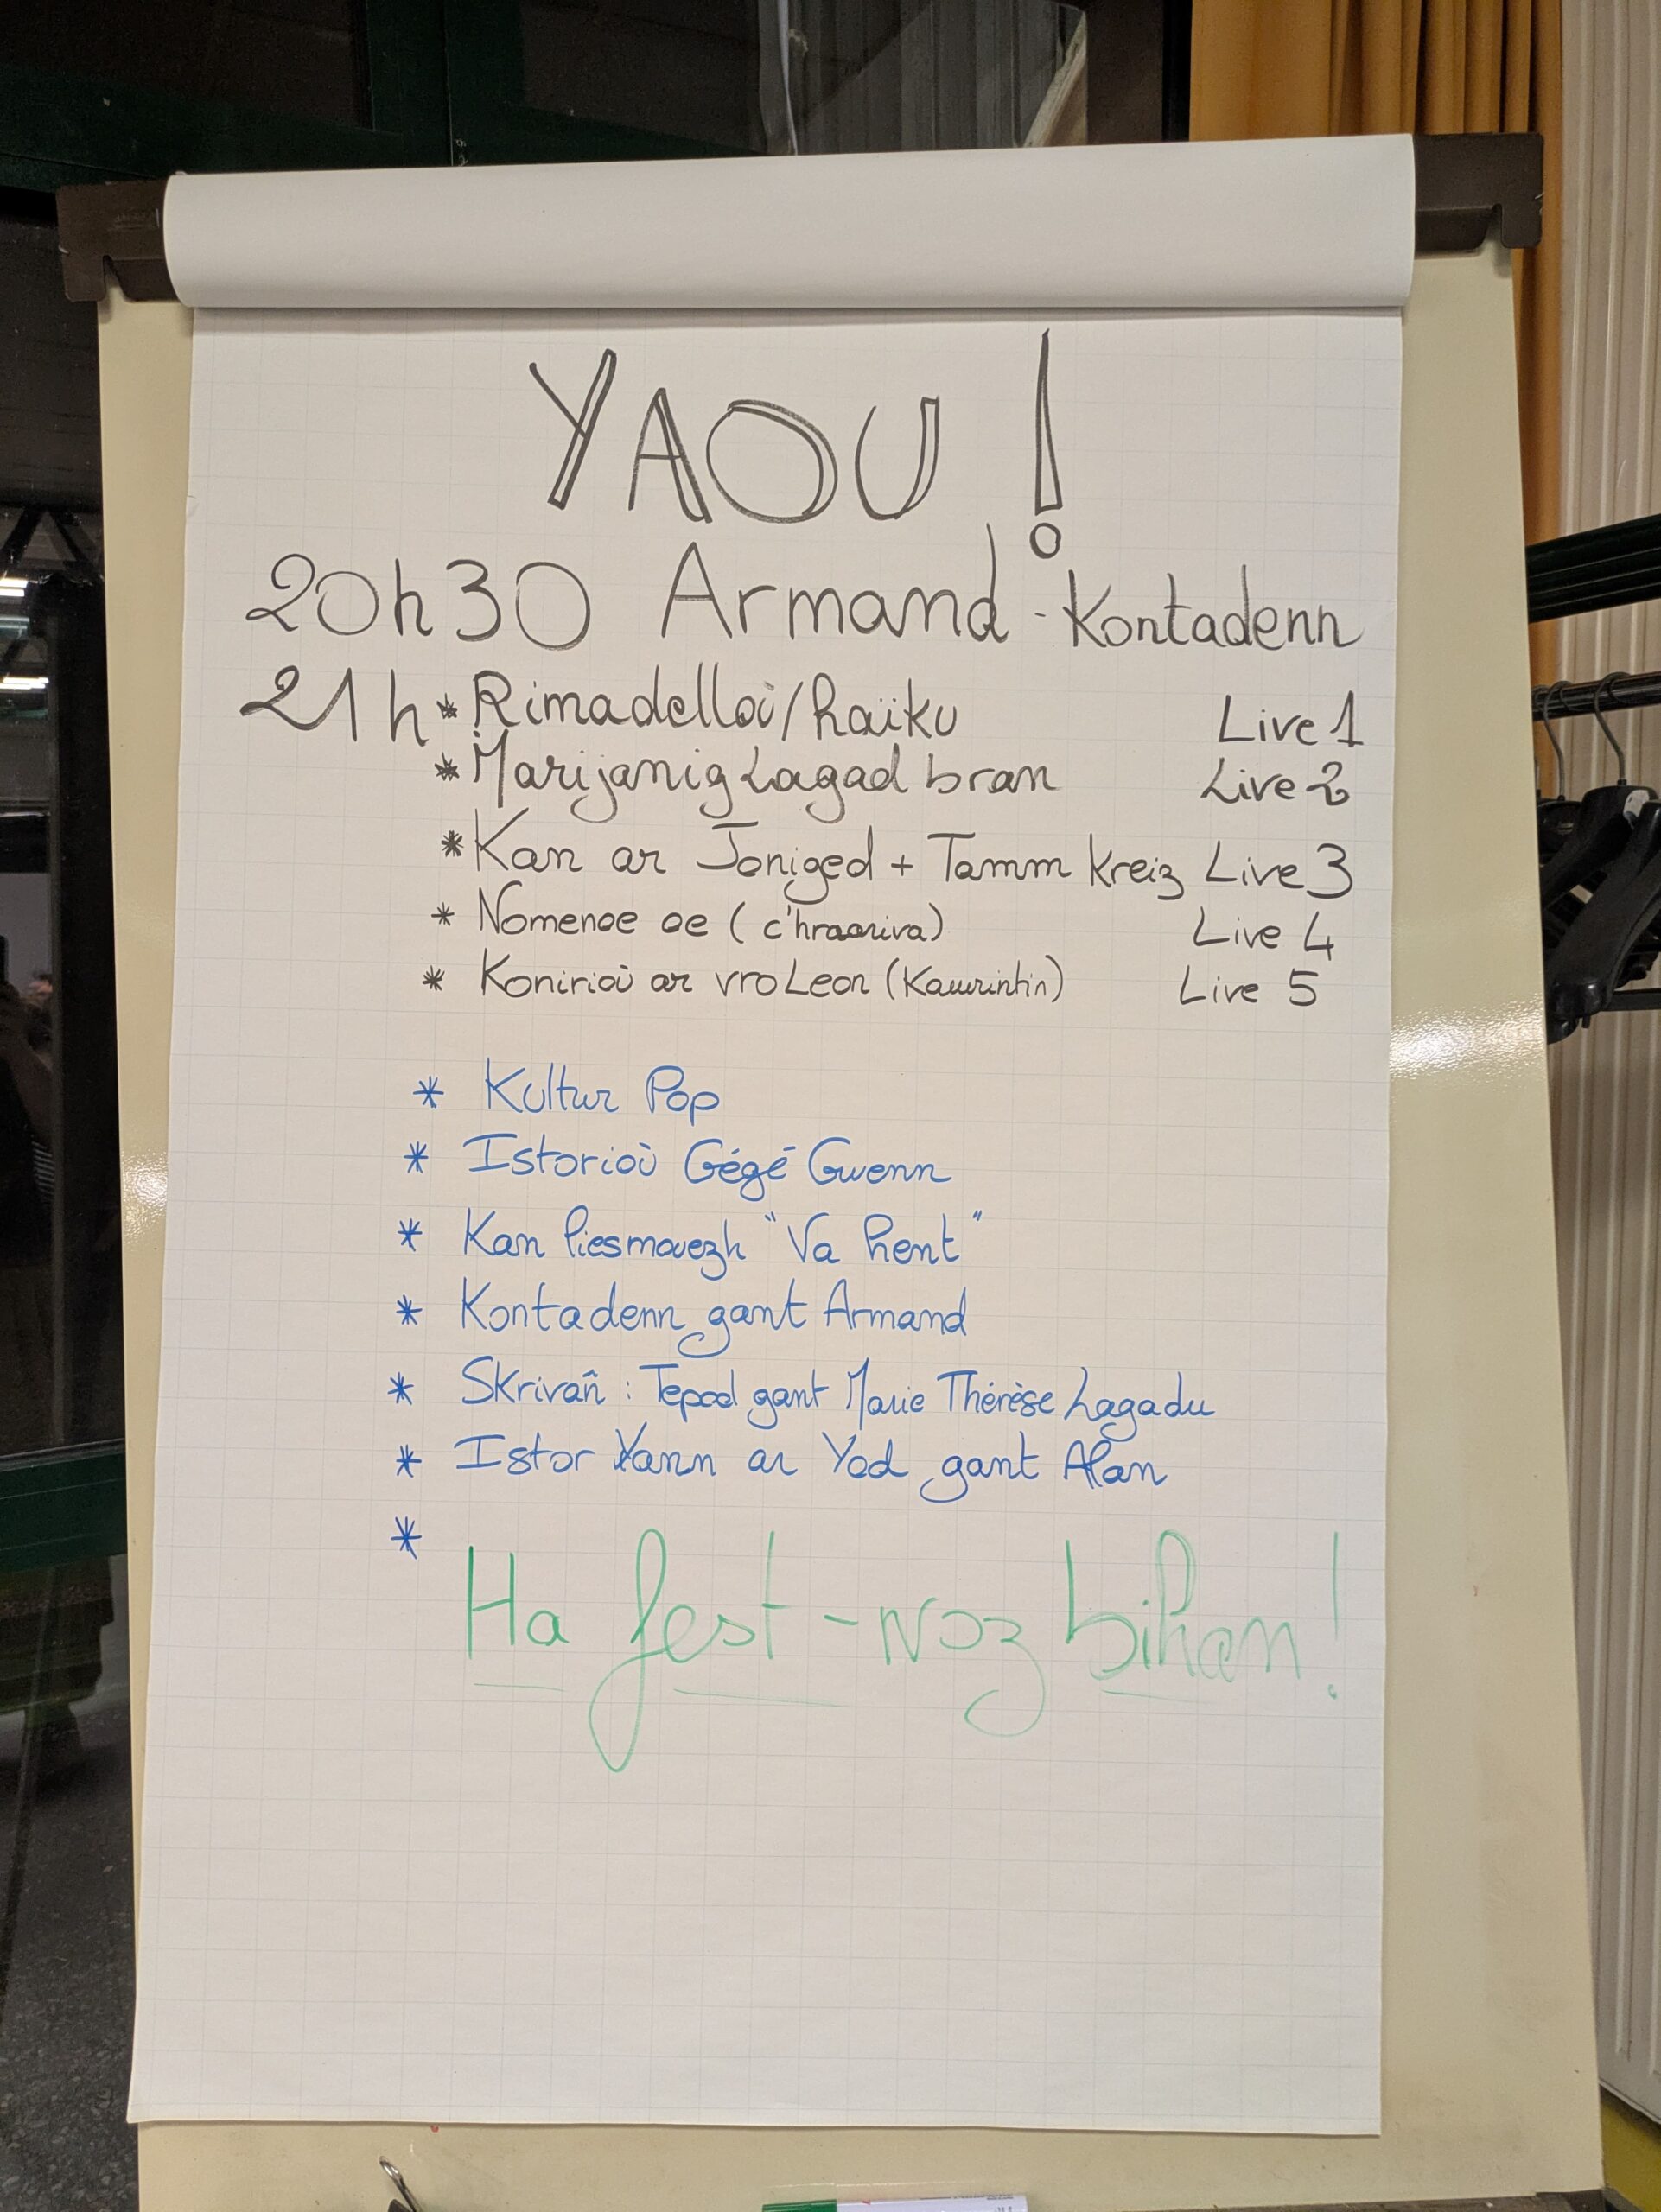 YAOU !
20h30 Armand - Kontadenn
21h * Rimadelloù/haïku Live 1
* Marijanig Lagad bran Live 2
* Kan ar Joniged + Tamm Kreiz Live 3
* Nomenoe oe Live 4
* ar vro Leon Live 5
* Kultur Pop
* Istorioù Gégé Gwenn
* Kan liesmouezh "Va hent"
* Kontadenn gant Armand
* Skrivañ : gant Marie Thérèse Lagadu
* Istor Yann ar Yod gant Alan
*
Ha fest-noz bihan !